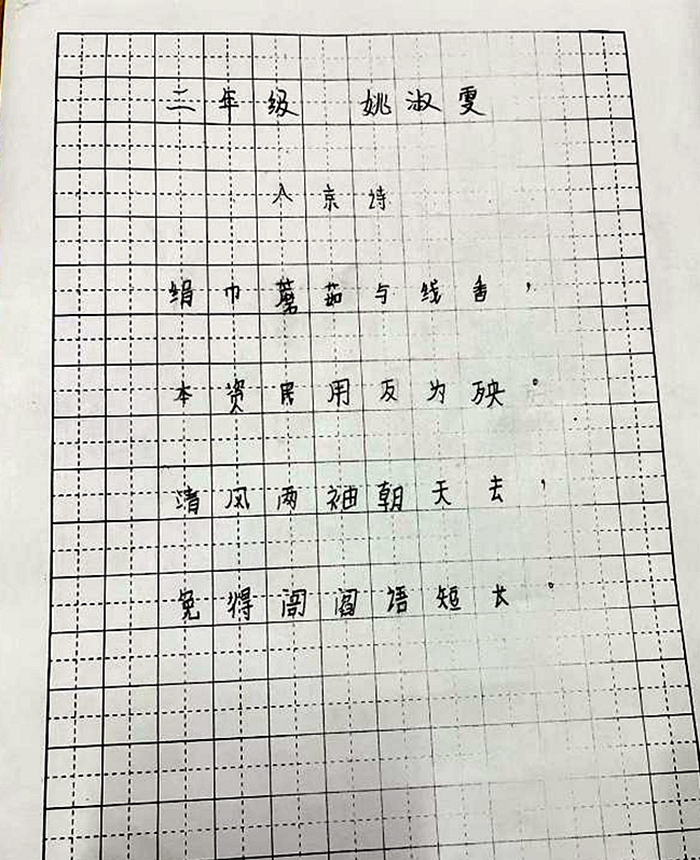 二年级 姚淑雯
入京诗
绢巾蘑茹与线香，
本资民用反为殃。
清风两袖朝天去，
免得闾阎语短长。